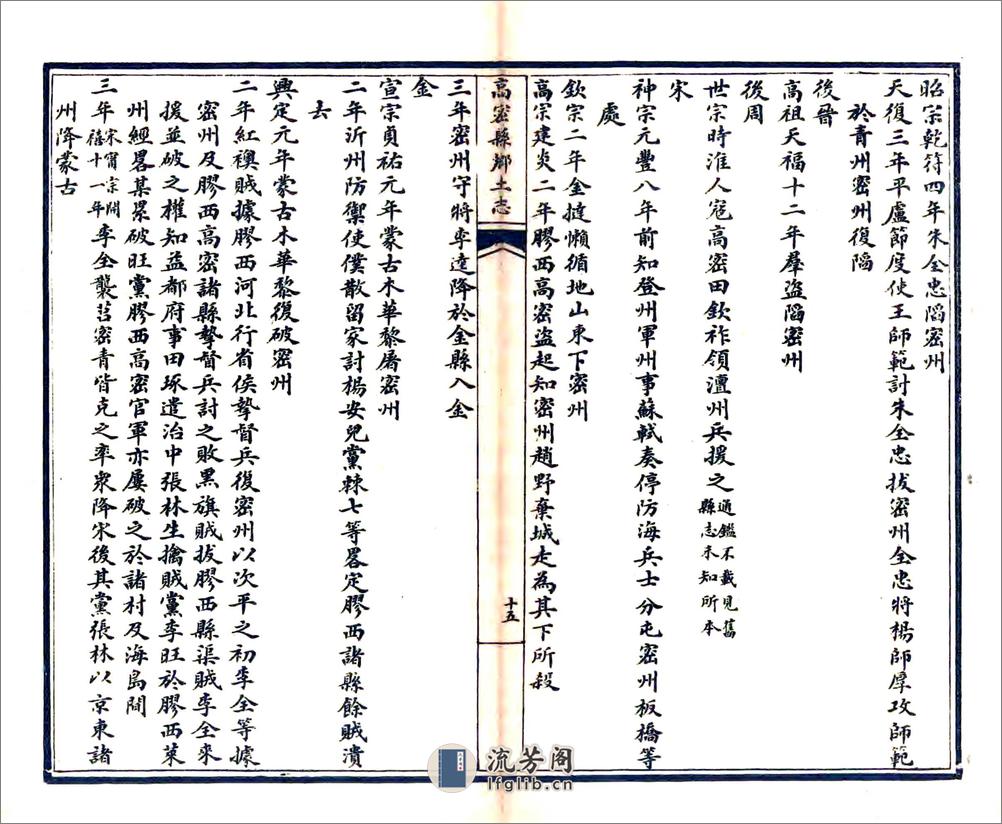 昭宗乾符四年朱全忠陷密州
天復三年平盧節度使王師範討朱全忠拔密州全忠將楊師厚攻師範
於青州密州復陷
後晉
高祖天福十二年羣盜陷密州
後周
世宗時淮人寇高密田欽祚領澶州兵援之通鑑不載見舊
縣志未知所本
宋
神宗元豐八年前知登州軍州事蘇軾奏停防海兵士分屯密州板橋等
處
欽宗二年金撻懶循地山東下密州
高宗建炎二年膠西高密盜起知密州趙野棄城走為其下所殺
高密縣鄉土志
十五
三年密州守將李逵降於金縣入金
金
宣宗貞祐元年蒙古木華黎屠密州
二年沂州防禦使僕散留家討楊安兒黨棘七等畧定膠西諸縣餘賊潰
去
興定元年蒙古木華黎復破密州
二年紅襖賊據膠西河北行省侯摯督兵復密州以次平之初李全等據
密州及膠西高密諸縣摯督兵討之敗黑旗賊拔膠西縣渠賊李全來
援並破之權知益都府事田琢遣治中張林生擒賊黨李旺於膠西萊
州經畧某累破旺黨膠西高密官軍亦屢破之於諸村及海島間
三年宋甯宗開
禧十一年李全襲莒密青皆克之率眾降宋後其黨張林以京東諸
州降蒙古
流芳阁
lfglib.cn